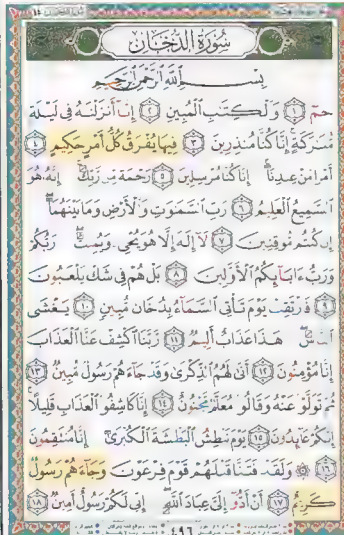 سُورَةُ الدُّخَانِ
بِسْمِ اللَّهِ الرَّحْمَٰنِ الرَّحِيمِ
حمٓ ﴿١﴾ وَالْكِتَٰبِ الْمُبِينِ ﴿٢﴾ إِنَّآ أَنزَلْنَٰهُ فِى لَيْلَةٍ
مُّبَٰرَكَةٍ إِنَّا كُنَّا مُنذِرِينَ ﴿٣﴾ فِيهَا يُفْرَقُ كُلُّ أَمْرٍ حَكِيمٍ ﴿٤﴾
أَمْرًا مِّنْ عِندِنَآ إِنَّا كُنَّا مُرْسِلِينَ ﴿٥﴾ رَحْمَةً مِّن رَّبِّكَ إِنَّهُۥ هُوَ
السَّمِيعُ الْعَلِيمُ ﴿٦﴾ رَبِّ السَّمَٰوَٰتِ وَالْأَرْضِ وَمَا بَيْنَهُمَآ
إِن كُنتُم مُّوقِنِينَ ﴿٧﴾ لَآ إِلَٰهَ إِلَّا هُوَ يُحْىِۦ وَيُمِيتُ رَبُّكُمْ
وَرَبُّ ءَابَآئِكُمُ الْأَوَّلِينَ ﴿٨﴾ بَلْ هُمْ فِى شَكٍّ يَلْعَبُونَ
﴿٩﴾ فَارْتَقِبْ يَوْمَ تَأْتِى السَّمَآءُ بِدُخَانٍ مُّبِينٍ ﴿١٠﴾ يَغْشَى
النَّاسَ هَٰذَا عَذَابٌ أَلِيمٌ ﴿١١﴾ رَّبَّنَا اكْشِفْ عَنَّا الْعَذَابَ
إِنَّا مُؤْمِنُونَ ﴿١٢﴾ أَنَّىٰ لَهُمُ الذِّكْرَىٰ وَقَدْ جَآءَهُمْ رَسُولٌ مُّبِينٌ ﴿١٣﴾
ثُمَّ تَوَلَّوْا۟ عَنْهُ وَقَالُوا۟ مُعَلَّمٌ مَّجْنُونٌ ﴿١٤﴾ إِنَّا كَاشِفُوا۟ الْعَذَابِ قَلِيلًا
إِنَّكُمْ عَآئِدُونَ ﴿١٥﴾ يَوْمَ نَبْطِشُ الْبَطْشَةَ الْكُبْرَىٰٓ إِنَّا مُنتَقِمُونَ
﴿١٦﴾ ۞ وَلَقَدْ فَتَنَّا قَبْلَهُمْ قَوْمَ فِرْعَوْنَ وَجَآءَهُمْ رَسُولٌ
كَرِيمٌ ﴿١٧﴾ أَنْ أَدُّوٓا۟ إِلَىَّ عِبَادَ اللَّهِ إِنِّى لَكُمْ رَسُولٌ أَمِينٌ ﴿١٨﴾
٤٩٦